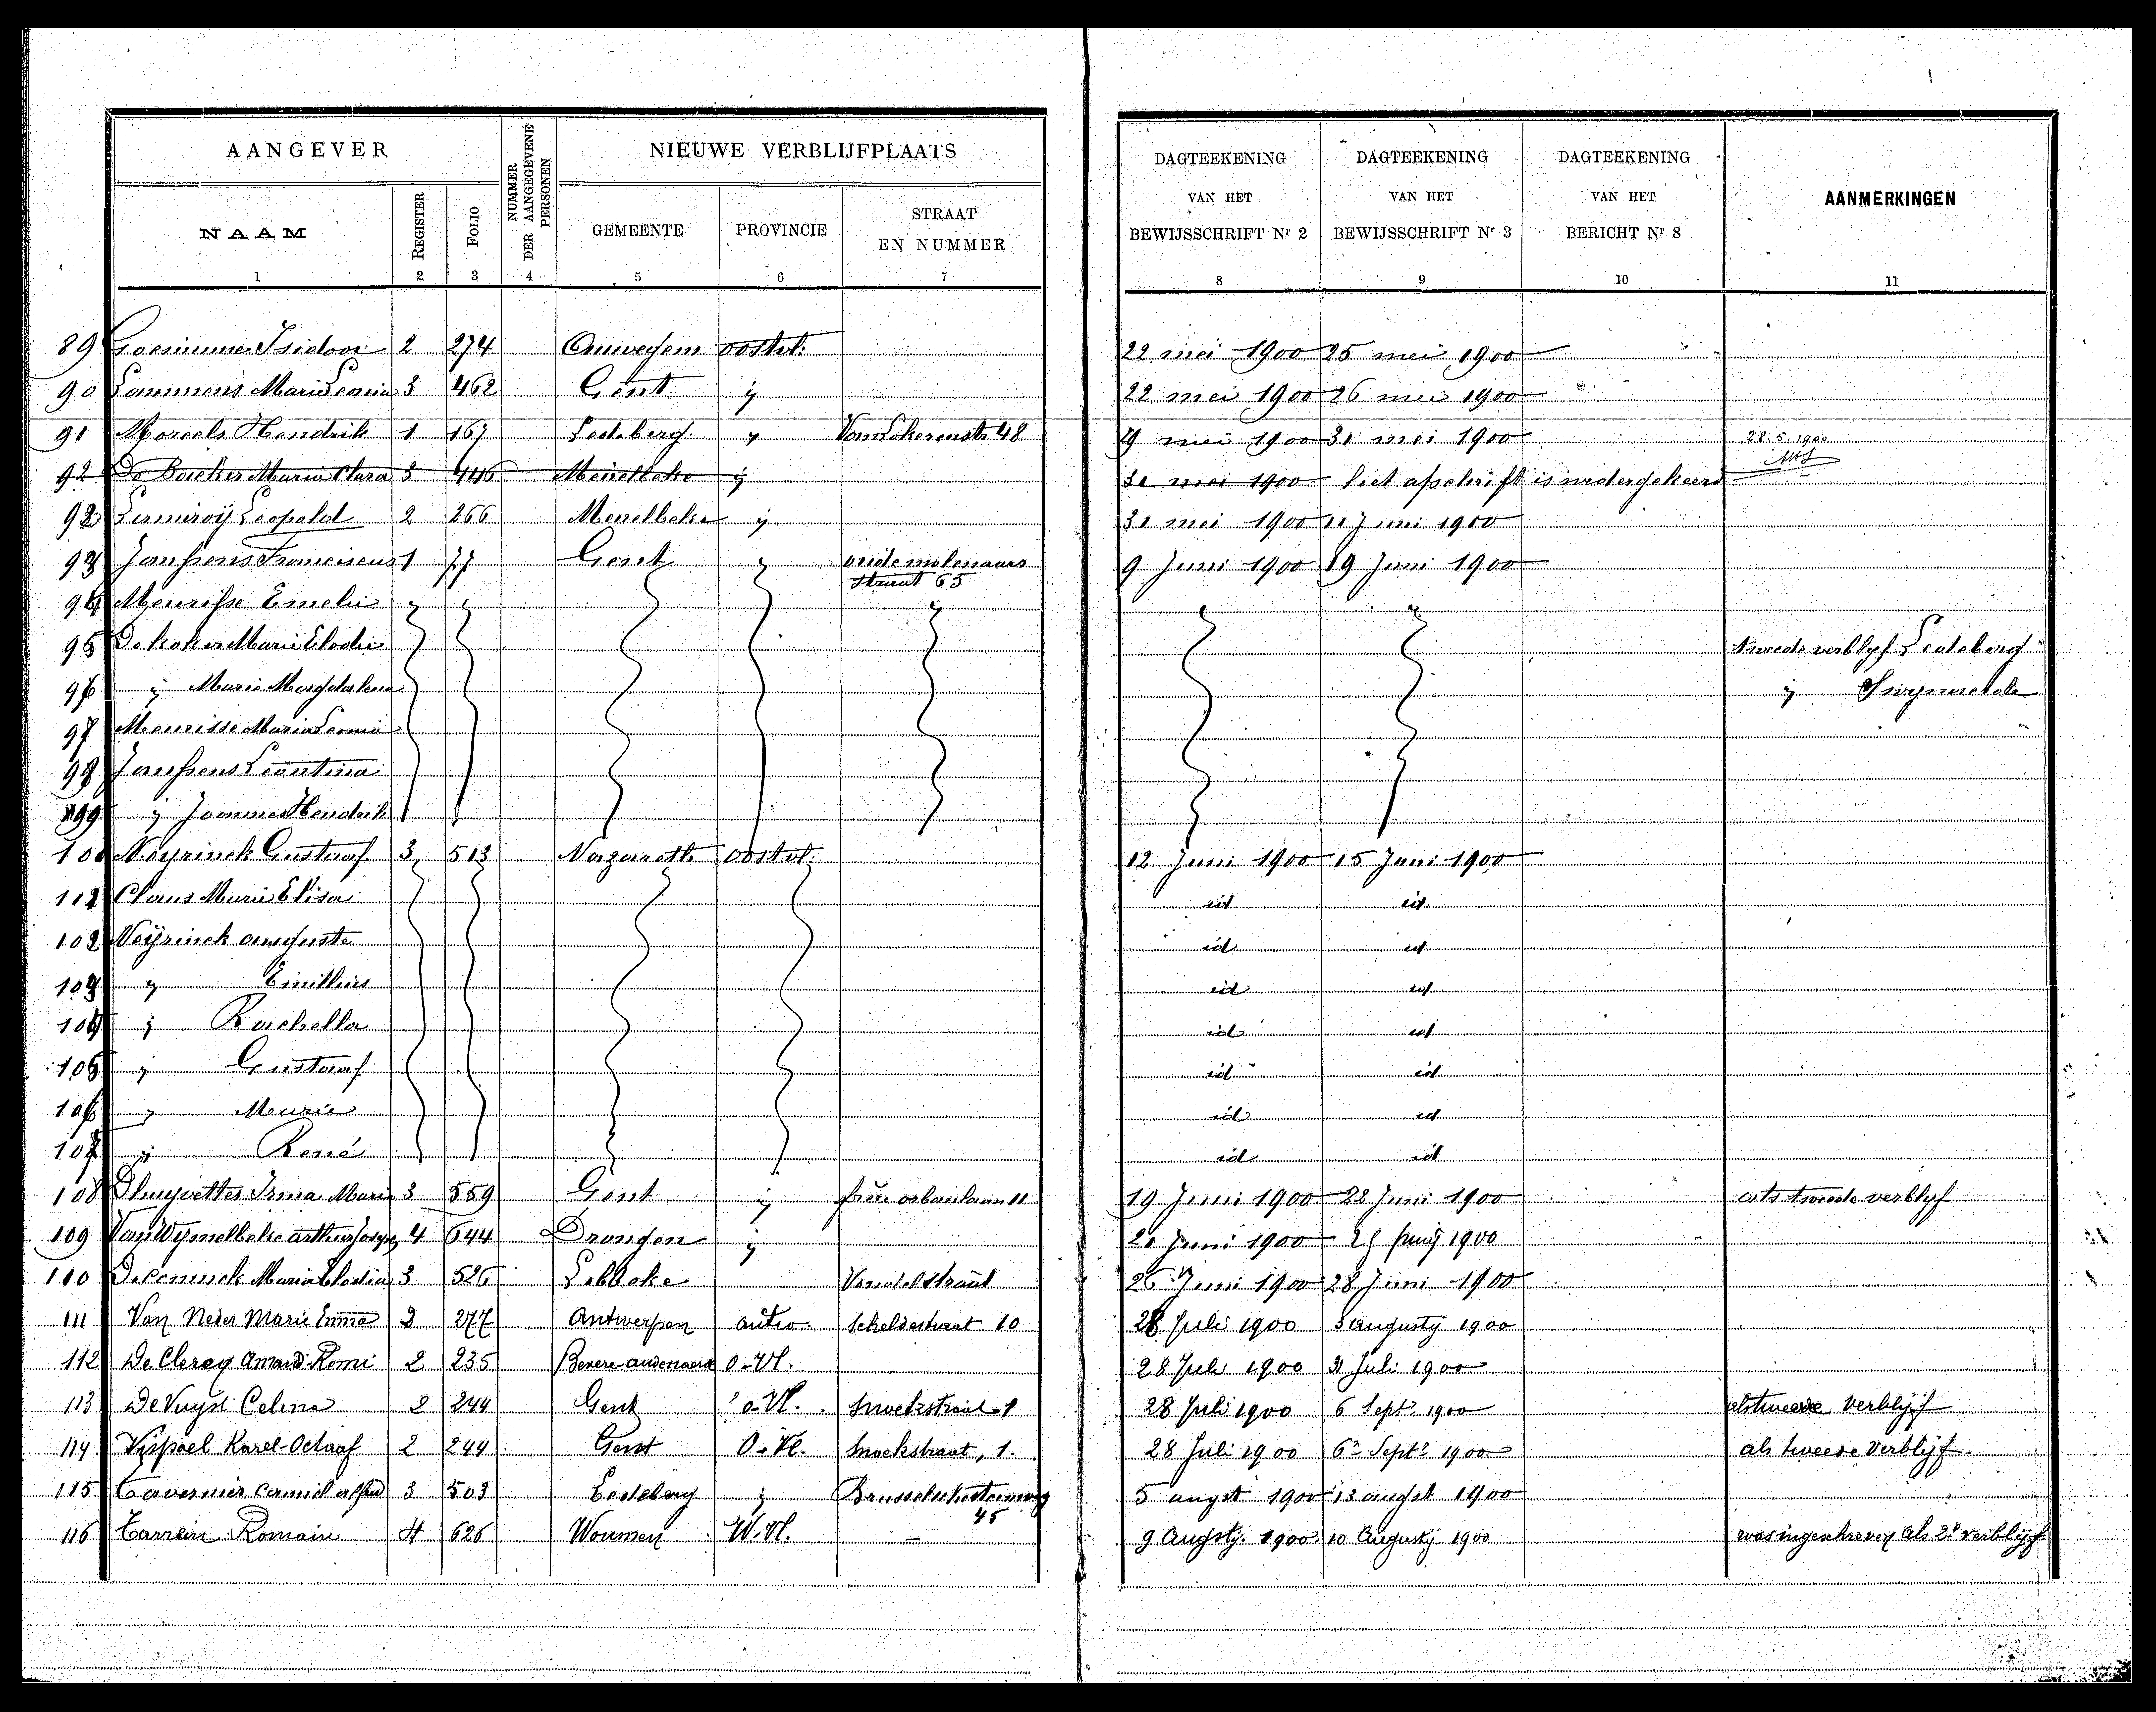 AANGEVER
NUMMER DER AANGEGEVENE PERSONEN
NIEUWE VERBLIJFPLAATS
NAAM REGISTER FOLIO GEMEENTE PROVINCIE STRAAT EN NUMMER
DAGTEEKENING VAN HET BEWIJSSCHRIFT Nr 2
DAGTEEKENING VAN HET BEWIJSSCHRIFT Nr 3
DAGTEEKENING VAN HET BERICHT Nr 8
AANMERKINGEN
1 2 3 4 5 6 7 8 9 10 11
89 Isidoor 2 274 oostvl. 22 mei 1900 25 mei 1900
90 Lammens Marie Leonie 3 462 Gent ij 22 mei 1900 26 mei 1900
91 Moreels Hendrik 1 167 Ledeberg ij 48 9 mei 1900 31 mei 1900 28.5.1900
92 De Backer Maria Clara 3 446 Meirelbeke ij 31 mei 1900 het afschrift is wedergekeerd
92 Leopold 2 266 Merelbeke ij 31 mei 1900 11 Juni 1900
93 Janssens Franciscus 1 77 Gent ij oude molenaars
straat 65 9 Juni 1900 19 Juni 1900
94 Meurisse Emelie
95 De koker Marie Elodie tweede verblyf Ledeberg
96 ij Marie Magdalena ij
97 Meurisse Maria Leonie
98 Janssens Leontina
99 ij Joannes Hendrik
100 Neyrinck Gustaaf 3 513 Nazareth oostvl. 12 Juni 1900 15 Juni 1900
101 Claus Marie Elisa id id
102 Neyrinck auguste id id
103 ij id id
104 ij Rachella id id
105 ij Gustaaf id id
106 ij id id
107 ij René id id
108 Irma Maria 3 559 Gent ij 19 Juni 1900 22 Juni 1900 als tweede verblyf
109 Van Wymelbeke arthur 4 644 Drongen ij Juni 1900 1900
110 Deconinck Maria Elodia 3 526 Lebbeke 26 Juni 1900 28 Juni 1900
111 Van Neder Marie Emma 2 277 Antwerpen antw. Scheldestraat 10 28 Juli 1900 3 augusty 1900
112 De Clercq Amand-Remi 2 235 Bevere-audenaerde O-Vl. 28 Juli 1900 31 Juli 1900
113 De Vuyst Celina 2 244 Gent o-Vl. Snoekstraat 1 28 Juli 1900 6 Septr 1900 als tweede verblijf
114 Vispoel Karel-Octaaf 2 244 Gent O-Vl. Snoekstraat, 1. 28 Juli 1900 6 Septr 1900 als tweede verblijf
115 Tavernier Camiel 3 503 Ledeberg ij Brusselschesteenweg
45 5 augst 1900 13 augst 1900
116 Romain 4 626 Woumen W.Vl. – 9 Augsty. 1900 10 Augusty 1900 was ingeschreven als 2e verblijf